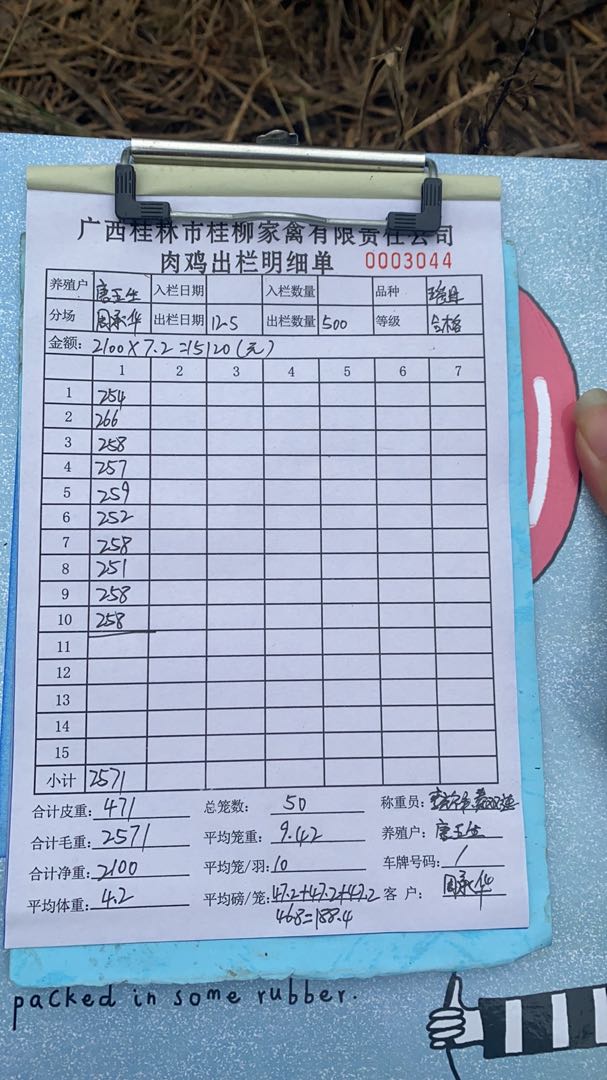 广西桂林市桂柳家禽有限责任公司
肉鸡出栏明细单 0003044
养殖户 唐玉生 入栏日期 入栏数量 品种
分场 周承华 出栏日期 12-5 出栏数量 500 等级 合格
金额: 2100×7.2=15120(元)
1 2 3 4 5 6 7
1 254
2 266
3 258
4 257
5 259
6 252
7 258
8 251
9 258
10 258
11
12
13
14
15
小计 2571
合计皮重: 471 总笼数: 50 称重员:
合计毛重: 2571 平均笼重: 9.42 养殖户: 唐玉生
合计净重: 2100 平均笼/羽: 10 车牌号码: /
平均体重: 4.2 平均磅/笼: 47.2+47.2+47.2 客 户: 周承华
46.8=188.4
packed in some rubber.